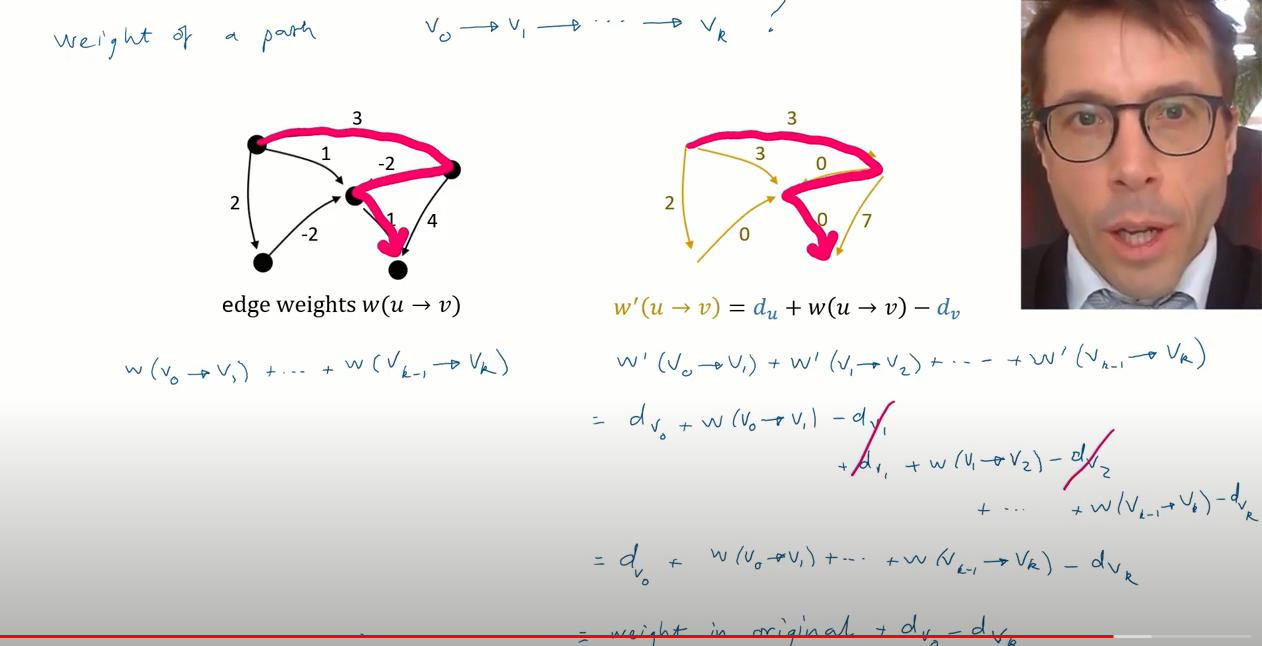 weight of a path v₀ → v₁ → ··· → vₖ ?
3
1
-2
2
-2
1
4
3
3
0
2
0
0
7
edge weights w(u → v)
w′(u → v) = dᵤ + w(u → v) − dᵥ
w(v₀ → v₁) + ··· + w(vₖ₋₁ → vₖ)
w'(v₀ → v₁) + w'(v₁ → v₂) + ···· + w'(vₖ₋₁ → vₖ)
= d_v₀ + w(v₀ → v₁) − d_v₁
+ d_v₁ + w(v₁ → v₂) − d_v₂
+ ··· + w(vₖ₋₁ → vₖ) − d_vₖ
= d_v₀ + w(v₀ → v₁) + ··· + w(vₖ₋₁ → vₖ) − d_vₖ
= weight in original + d_v₀ − d_vₖ